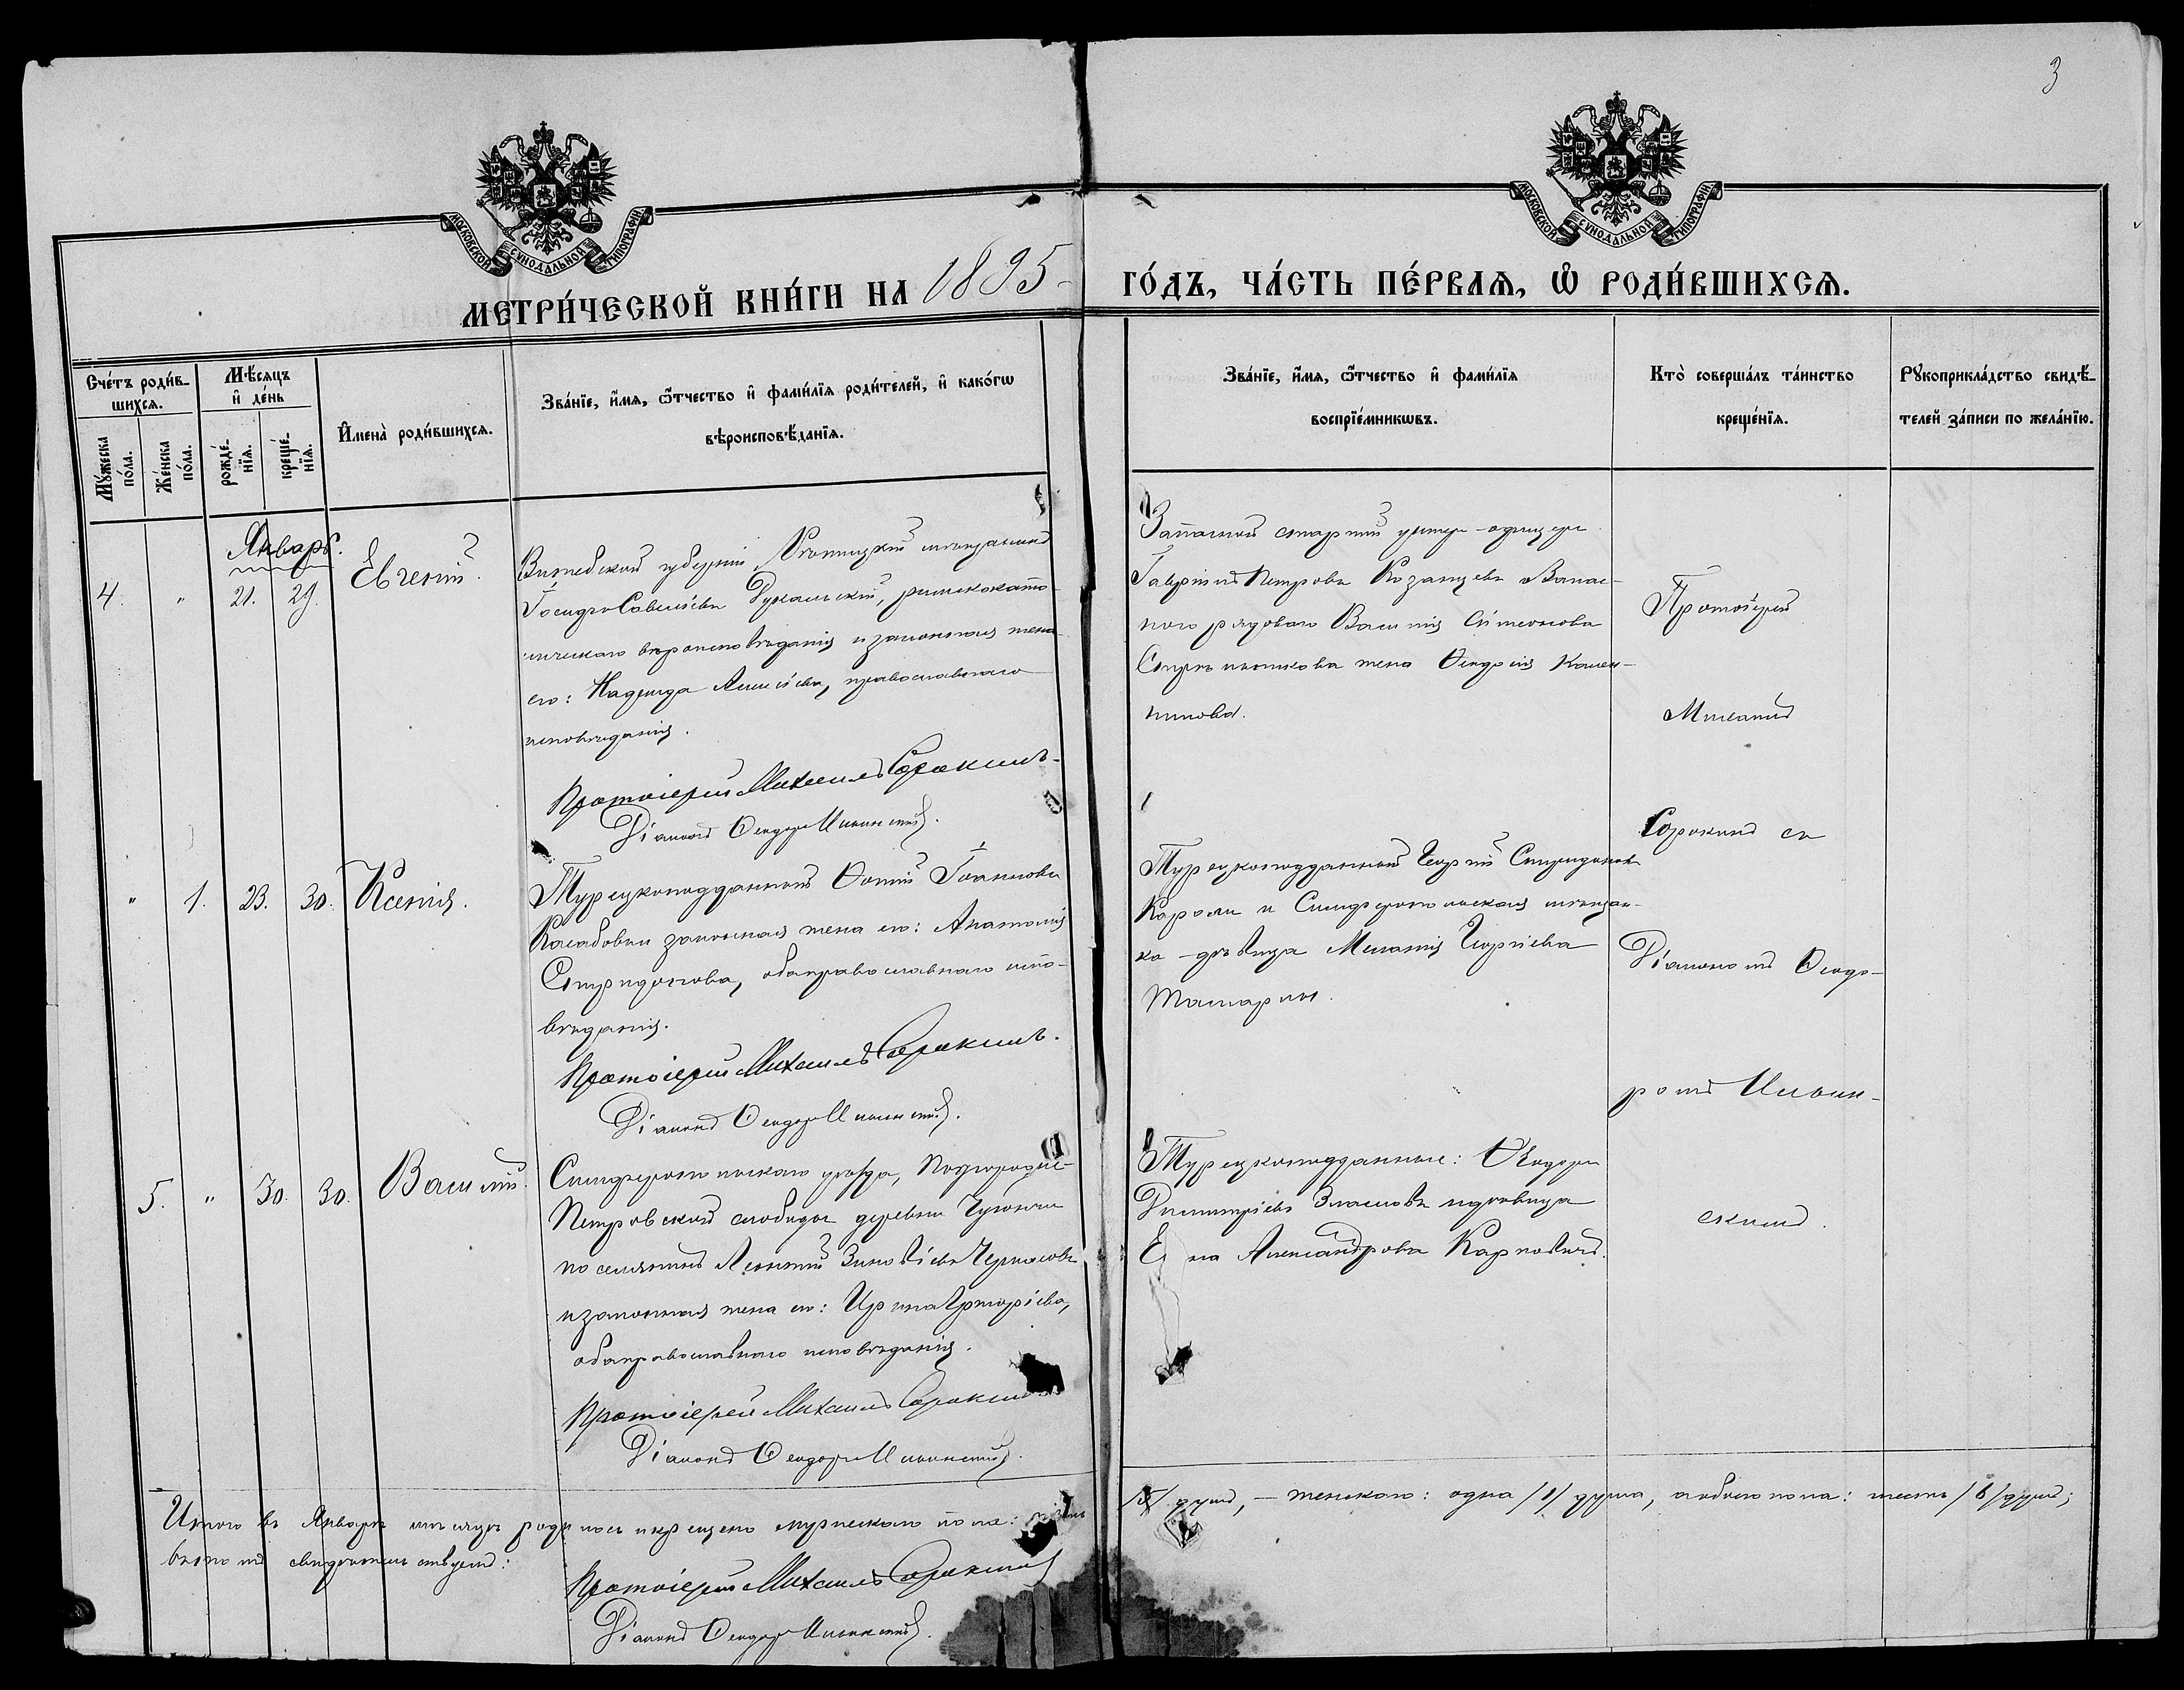 3
МОСКОВСКОЙ СѴНОДАЛЬНОЙ ТИПОГРАФІИ
МОСКОВСКОЙ СѴНОДАЛЬНОЙ ТИПОГРАФІИ
МЕТРИ́ЧЕСКОЙ КНИ́ГИ НА 1895 ГО́ДЪ, ЧА́СТЬ ПЕ́РВАѦ, Ѡ҆ РОДИ́ВШИХСѦ.
Сче́тъ роди́в-
шихсѧ.
Мꙋ́жеска по́ла.
Же́нска по́ла.
Мѣ́сяцъ и҆ де́нь
рожде́-нїѧ.
креще́-нїѧ.
И҆мена̀ роди́вшихсѧ.
Зва́нїе, и҆́мѧ, ѻ҆́тчество и҆ фами́лїѧ роди́телей, и҆ како́гѡ
вѣроисповѣ́данїѧ.
Зва́нїе, и҆́мѧ, ѻ҆́тчество и҆ фами́лїѧ
воспрїе́мникѡвъ.
Кто̀ соверша́лъ та́инство
креще́нїѧ.
Рꙋкоприкла́дство свидѣ́-
телей за́писи по жела́нїю.
Январь.
4. " 21. 29. Евгений.
Витебской губерніи мѣщанинъ
Іосифъ Савельевъ римскокато-
лическаго вѣроисповѣданія и законная жена
его: Надежда православнаго
исповѣданія.
Протоіерей Михаилъ Сорокинъ.
Діаконъ Ѳеодоръ Ильинскій.
Запасный старшій унтеръ-офицеръ
Гавріилъ Петровъ Казанцевъ и запас-
ного рядоваго Василія Симеонова
жена Ѳеодосія
Протоіерей
Михаилъ
Сорокинъ съ
Діакономъ Ѳеодо-
ромъ Ильин-
скимъ.
" 1. 23. 30. Ксенія.
Турецкоподданный Іоанновъ
законная жена его: Анастасія
Спиридонова, оба православнаго испо-
вѣданія.
Протоіерей Михаилъ Сорокинъ.
Діаконъ Ѳеодоръ Ильинскій.
Турецкоподданный Георгій Спиридоновъ
и Симферопольская мѣщан-
ка - дѣвица Георгіева
5. " 30. 30. Василій.
Симферопольскаго уѣзда, Подгородне-
Петровской слободы деревни
поселянинъ Леонтій Зиновіевъ
и законная жена его: Ирина Григоріева,
оба православнаго исповѣданія.
Протоіерей Михаилъ Сорокинъ
Діаконъ Ѳеодоръ Ильинскій.
Турецкоподданные: Ѳеодоръ
Димитріевъ и дѣвица
Александрова Карповичъ.
Итого въ Январѣ мѣсяцѣ родилось и крещено мужескаго пола: пять
/5/ душъ, - женскаго: одна /1/ душа, а обоего пола: шесть /6/ душъ;
въ томъ свидѣтельствуемъ:
Протоіерей Михаилъ Сорокинъ
Діаконъ Ѳеодоръ Ильинскій.